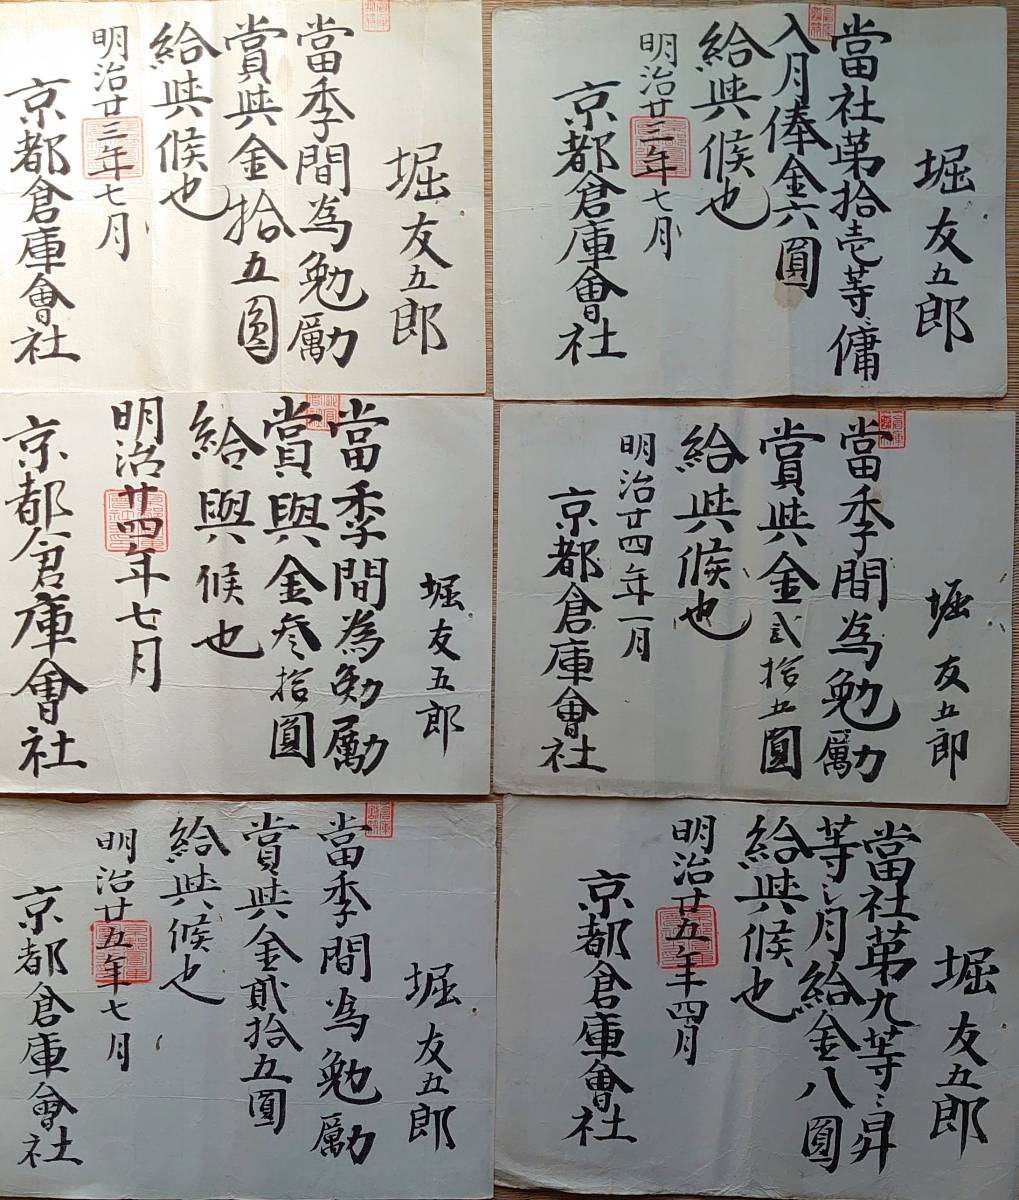 堀友五郎
當社第拾壱等傭
入月俸金六圓
給與候也
明治廿三年七月
京都倉庫會社
堀友五郎
當季間為勉勵
賞與金拾五圓
給與候也
明治廿三年七月
京都倉庫會社
堀友五郎
當季間為勉勵
賞與金弐拾五圓
給與候也
明治廿四年一月
京都倉庫會社
堀友五郎
當季間為勉勵
賞與金叁拾圓
給與候也
明治廿四年七月
京都倉庫會社
堀友五郎
當社第九等ニ昇
等シ月給金八圓
給與候也
明治廿五年四月
京都倉庫會社
堀友五郎
當季間為勉勵
賞與金貳拾五圓
給與候也
明治廿五年七月
京都倉庫會社